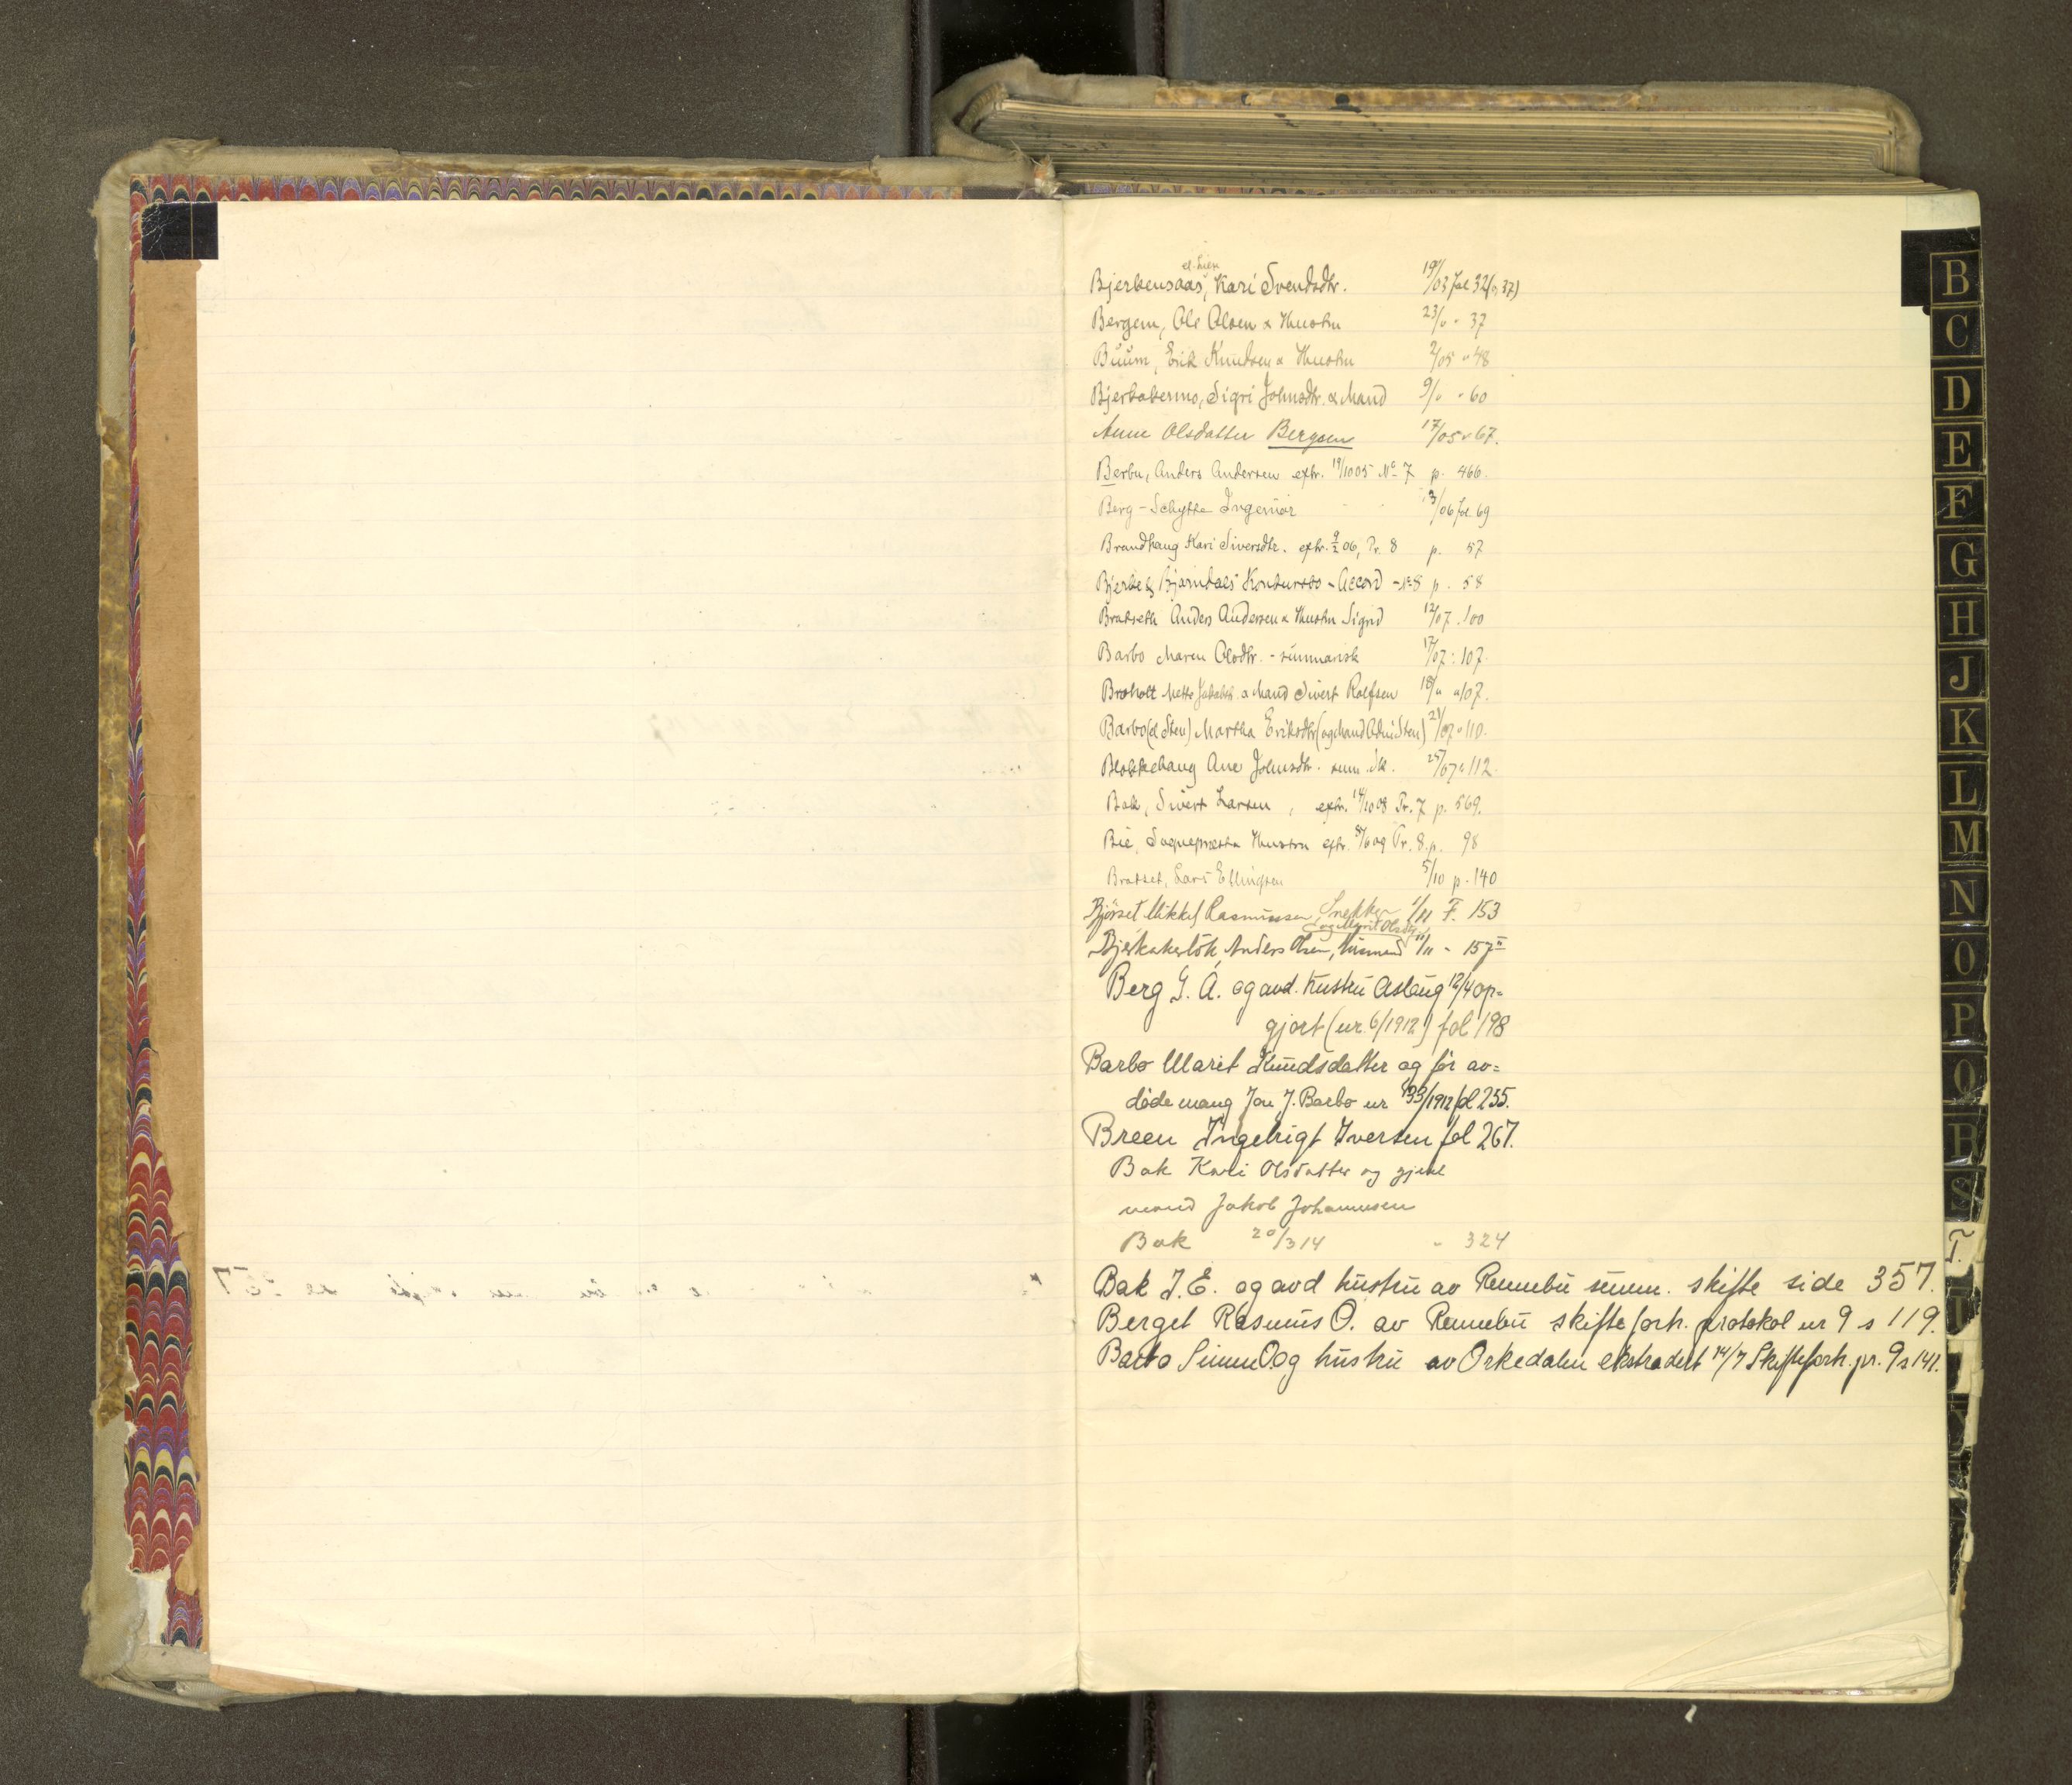 el. Lien
Bjerkensaas, Kari Svendsdtr. 19/03 fol 32 (o. 37)
Bergem, Ole Olsen & Hustru 23/" " 37
Buum, Erik Knudsen & Hustru 2/05 " 48
Bjerkakermo, Sigri Johnsdtr. & Mand 9/" " 60
Anne Olsdatter Bergsen 17/05 " 67.
Berbu, Anders Andersen extr. 19/10 05 No 7 p. 466.
Berg-Schytte Ingeniør 13/06 fol 69
Brandhaug Kari Siversdtr. extr. 9/2 06, Pr. 8 p. 57
Bjerke & Bjørndals Konkursbo - Accord - No 8 p. 58
Bratseth Anders Andersen & Hustru Sigrid 12/07 . 100
Barbo Maren Olsdtr. - summarisk 17/07 : 107.
Broholt Mette Jakobsd. & Mand Sivert Rolfsen 18/" " 107.
Barbo (el Sten) Martha Eriksdtr (og Mand Sten) 21/07 " 110.
Blokkehaug Ane Johnsdtr. sum. sk. 25/07 " 112
Bak, Sivert Larsen, extr. 14/10 08 Pr. 7 p. 569.
Bie, Sogneprests Hustru extr. 8/6 09 Pr. 8. p. 98
Bratset, Lars Ellingsen 5/10 p. 140
Bjørset Mikkel Rasmussen, Snekker 1/11 F. 153
og Marit Olsdtr
Bjerkakerløk, Anders Olsen, husmand 11/11 - 157
Berg G. A. og avd. hustru Aslaug 12/4 op=
gjort (nr. 6/1912) fol 198
Barbo Marit Knudsdatter og før av=
døde mang Jon J. Barbo nr 133/1912 fol 255.
Breen Ingebrigt Iversen fol 267.
Bak Kari Olsdatter og gjenl
mand Jakob Johannesen
Bak 20/3 14 " 324
Bak J. E. og avd hustru av Rennebu summ. skifte side 357.
Berget Rasmus O. av Rennebu skifteforh. protokol nr 9 s 119.
Barbo Simen O. og hustru av Orkedalen ekstradert 14/7 Skifteforh. pr. 9 s 141.
B
C
D
E
F
G
H
J
K
L
M
N
O
P
Q
R
S
T.